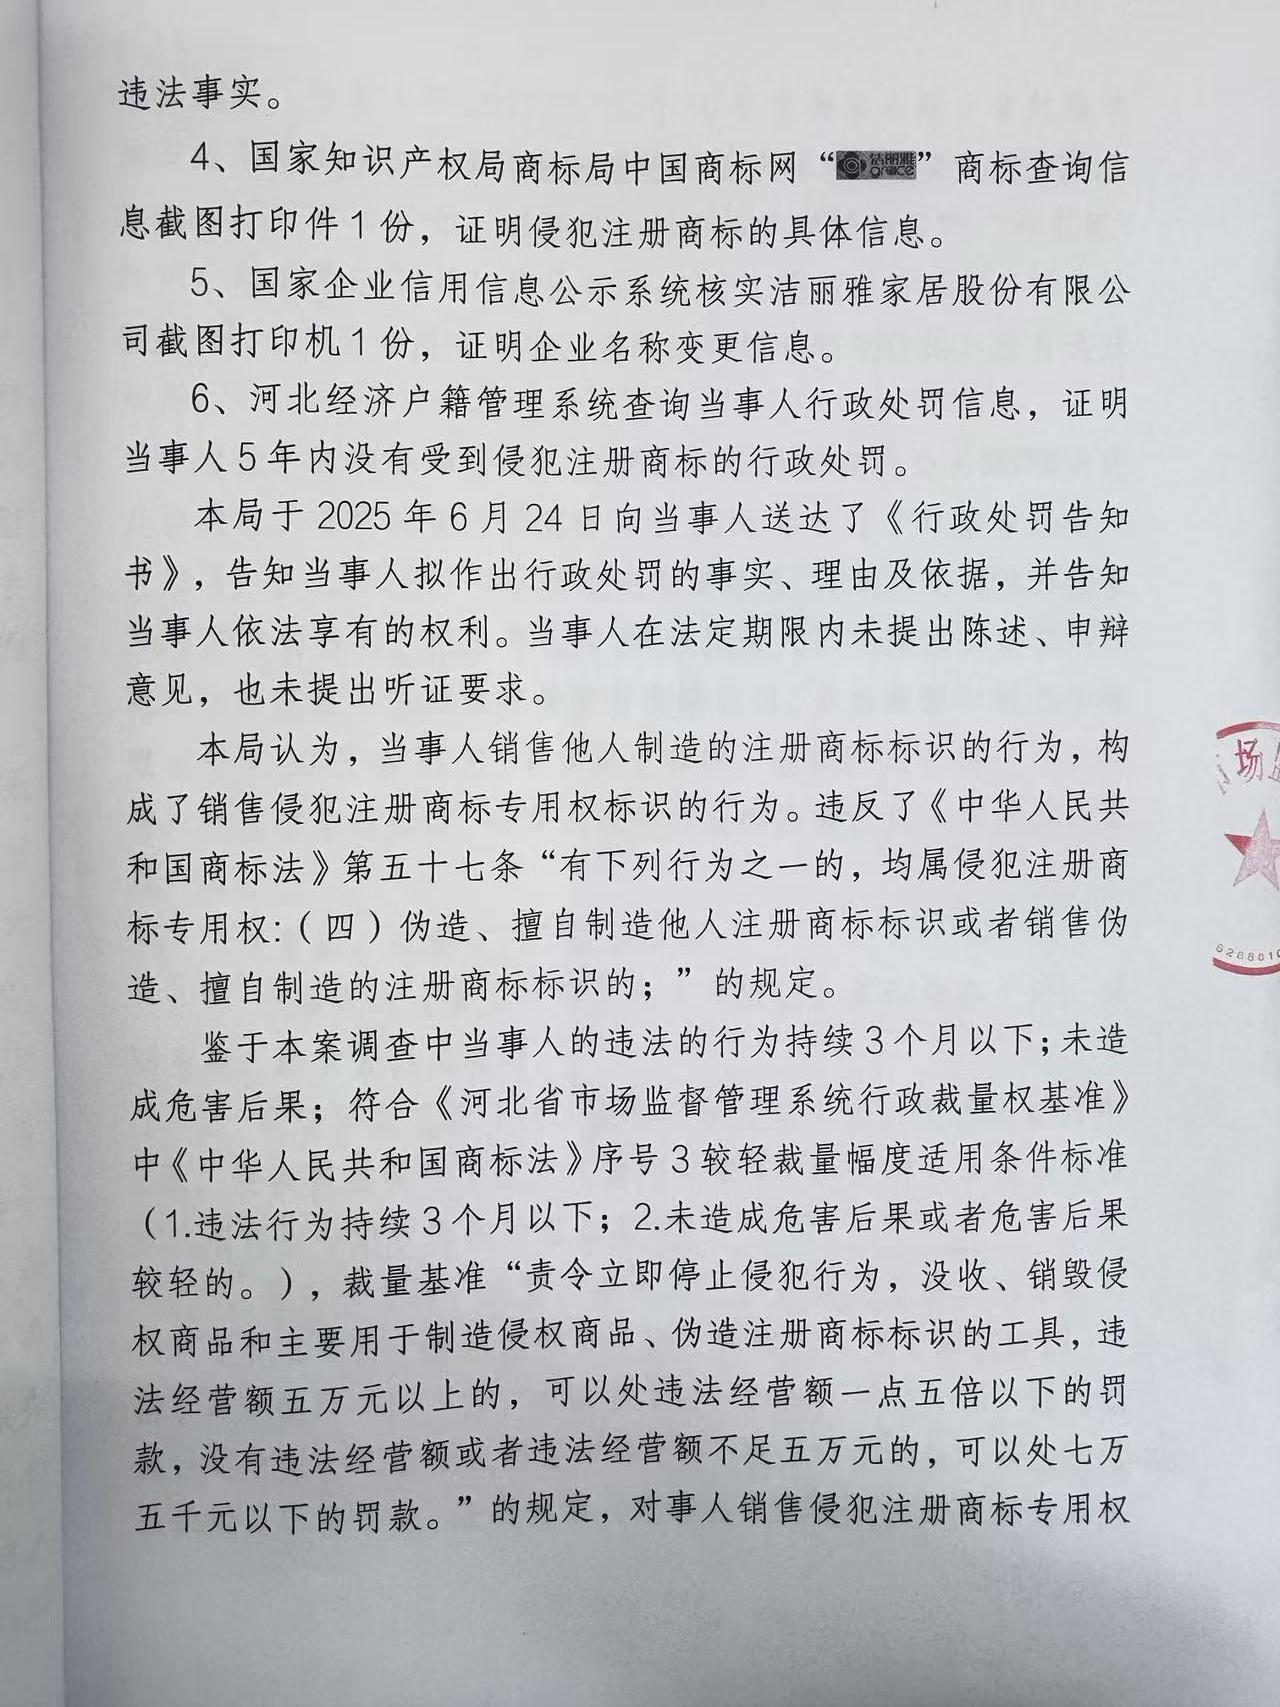 违法事实。
4、国家知识产权局商标局中国商标网“洁丽雅 grace”商标查询信
息截图打印件1份，证明侵犯注册商标的具体信息。
5、国家企业信用信息公示系统核实洁丽雅家居股份有限公
司截图打印机1份，证明企业名称变更信息。
6、河北经济户籍管理系统查询当事人行政处罚信息，证明
当事人5年内没有受到侵犯注册商标的行政处罚。
本局于2025年6月24日向当事人送达了《行政处罚告知
书》，告知当事人拟作出行政处罚的事实、理由及依据，并告知
当事人依法享有的权利。当事人在法定期限内未提出陈述、申辩
意见，也未提出听证要求。
本局认为，当事人销售他人制造的注册商标标识的行为，构
成了销售侵犯注册商标专用权标识的行为。违反了《中华人民共
和国商标法》第五十七条“有下列行为之一的，均属侵犯注册商
标专用权:（四）伪造、擅自制造他人注册商标标识或者销售伪
造、擅自制造的注册商标标识的；”的规定。
鉴于本案调查中当事人的违法的行为持续3个月以下；未造
成危害后果；符合《河北省市场监督管理系统行政裁量权基准》
中《中华人民共和国商标法》序号3较轻裁量幅度适用条件标准
（1.违法行为持续3个月以下；2.未造成危害后果或者危害后果
较轻的。），裁量基准“责令立即停止侵犯行为，没收、销毁侵
权商品和主要用于制造侵权商品、伪造注册商标标识的工具，违
法经营额五万元以上的，可以处违法经营额一点五倍以下的罚
款，没有违法经营额或者违法经营额不足五万元的，可以处七万
五千元以下的罚款。”的规定，对事人销售侵犯注册商标专用权
场
6288810